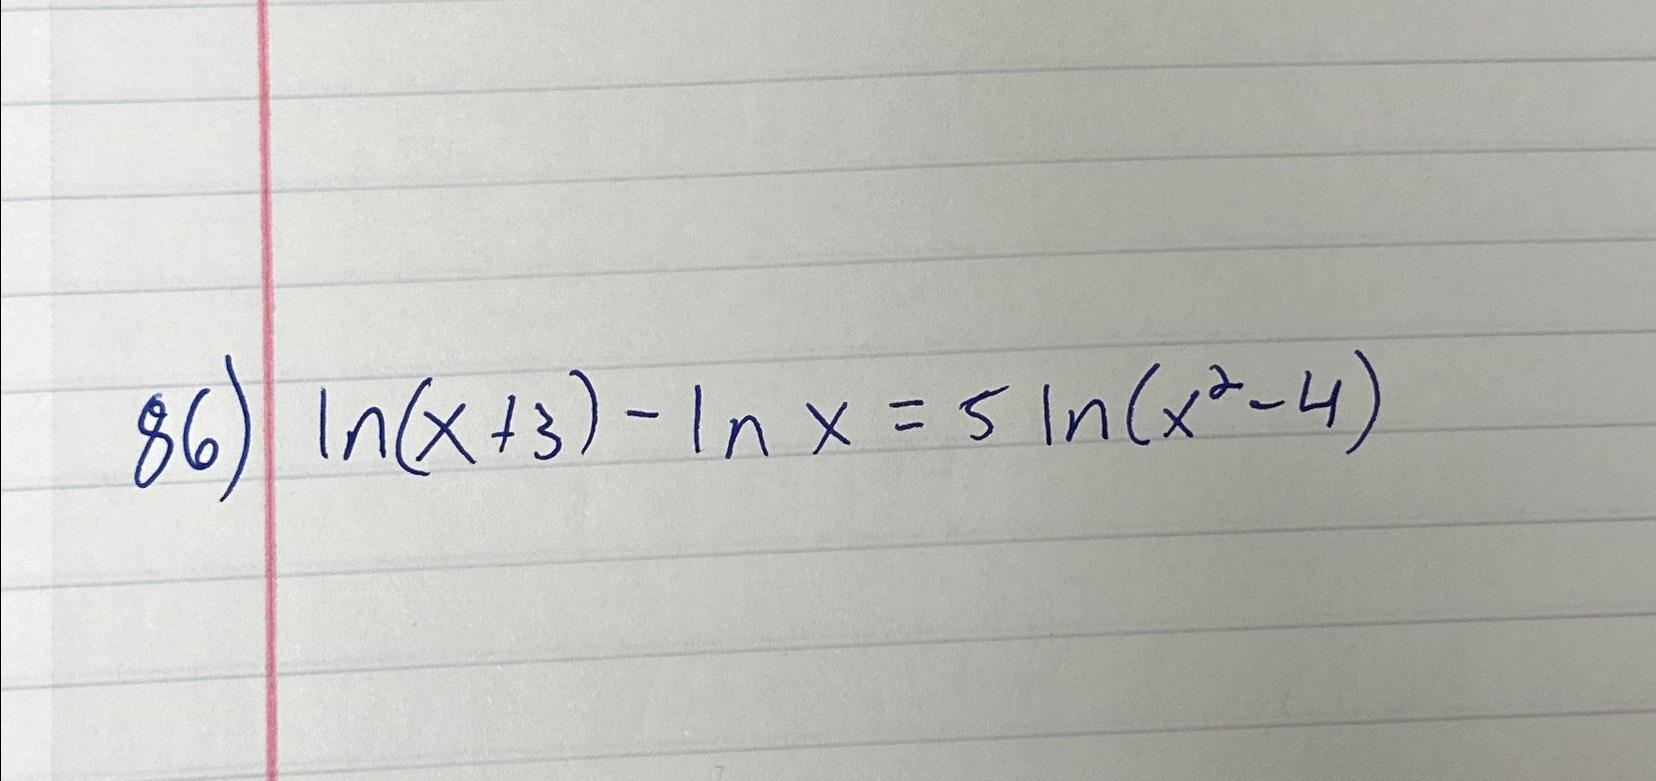 86) ln(x+3) - ln x = 5 ln(x² - 4)